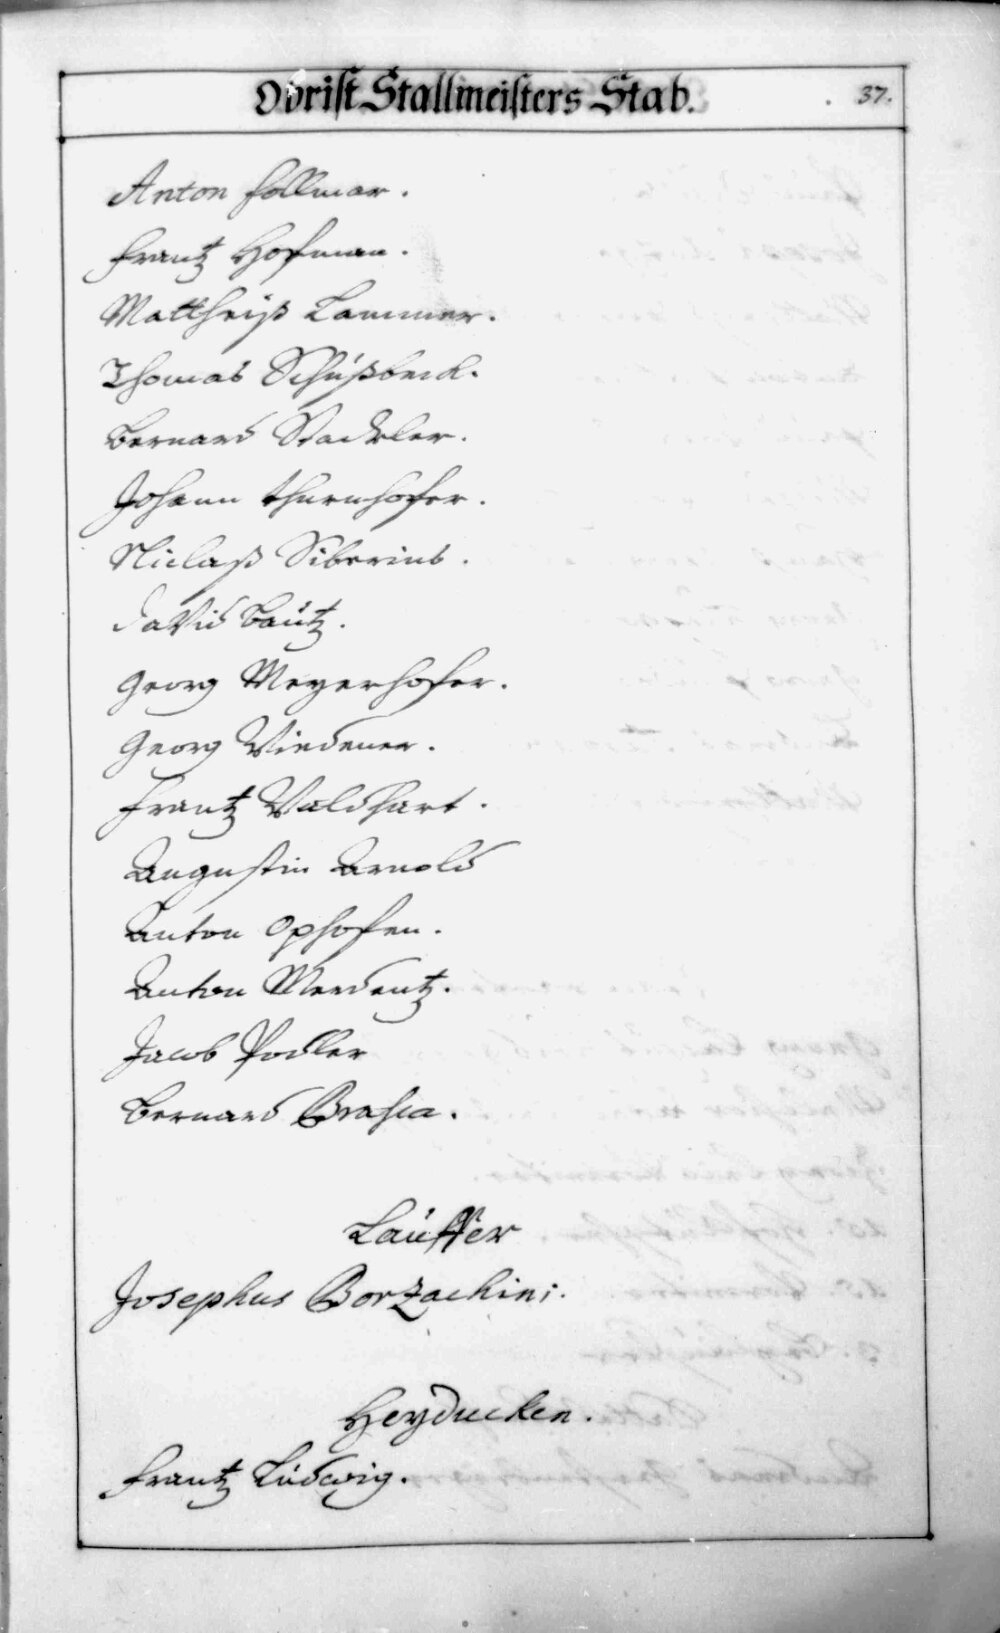 Obrist Stallmeisters Stab. 37.
Anton Follmar.
Frantz Hofman.
Mattheiß Lammer.
Thomas Schüßbeck.
Bernard Stadler.
Johann Thurnhofer.
Niclaß Siberius.
David Bautz.
Georg Meyerhofer.
Georg Viedener.
Frantz Waldhart.
Augustin Arnold
Anton Ophofen.
Anton Merdentz.
Jacob Podller
Bernard Brasca.
Läuffer
Josephus Borzachini.
Heyducken.
Frantz Ludwig.